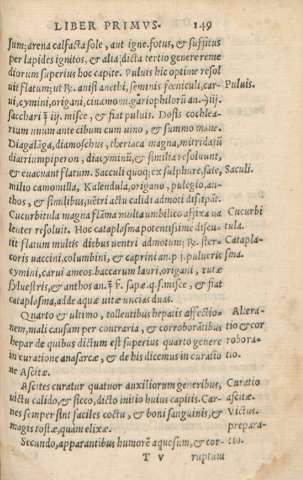 LIBER PRIMVS. 149
sum; arena calfacta sole, aut igne. fotus, & suffitus
per lapides ignitos, & alia dicta tertio genere reme
diorum superius hoc capite. Puluis hic optime resol
uit flatum; ut ℞. anisi anethi, seminis foeniculi, car- Puluis.
ui, cymini, origani, cinamomi. gariophilorũ an.
sacchari ʒ iij. misce, & fiat puluis. Dosis cochlea-
rium unum ante cibum cum uino, & summo mane.
Diagalãga, diamoschus, theriaca magna, mitridatũ
diatriumpiperon, diacyminũ, & similia resoluunt,
& euacuant flatum. Sacculi quoq; ex sulphure, sale, Saculi.
milio camomilla, Kalendula, origano, pulegio, an-
thos, & similibus, uẽtri actu calidi admoti dissipãt.
Cucurbitula magna flãma multa umbelico affixa ua Cucurbi
lenter resoluit. Hoc cataplasma potentissime discu- tula.
tit flatum multis diebus uentri admotum; ℞. ster- Catapla-
coris uaccini, columbini, & caprini an. p. j. pulueris sma.
cymini, carui ameos. baccarum lauri, origani, rutæ
syluestris, & anthos an. ʒ ß. sapæ. q. s. misce, & fiat
cataplasma, adde aquæ uitæ uncias duas.
Quarto & ultimo, tollentibus hepatis affectio- Altera-
nem, mali causam per contraria, & corroborãtibus tio & cor
hepar de quibus dictum est superius quarto genere robora-
in curatione anasarcæ, & de his dicemus in curatio tio.
ne Ascitæ.
Ascites curatur quatuor auxiliorum generibus, Curatio
uictu calido, & sicco, dicto initio huius capitis. Car- ascitæ.
nes semper sint faciles coctu, & boni sanguinis, & Victus.
magis tostæ, quàm elixæ. prepara-
Secundo, apparantibus humorẽ aquosum, & cor- tio.
T V ruptum